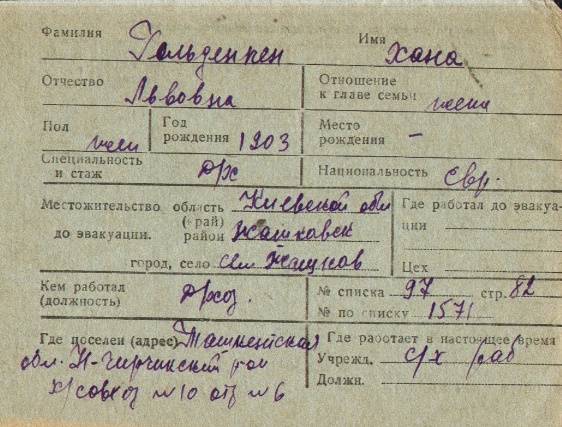 Фамилия Гольденкен Имя Хана
Отчество Львовна Отношение к главе семьи жена
Пол жен Год рождения 1903 Место рождения –
Специальность и стаж д/х Национальность евр.
Местожительство область Киевской обл Где работал до эвакуа-
(край)
до эвакуации. район Жашковск ции
город, село Цех
Кем работал (должность) д/хоз. № списка 97 стр. 82
№ по списку 1571
Где поселен (адрес) Ташкентская Где работает в настоящее время
обл. Н-Чирчикский рай Учрежд. с/х раб
х/совхоз №10 отд №6 Должн.